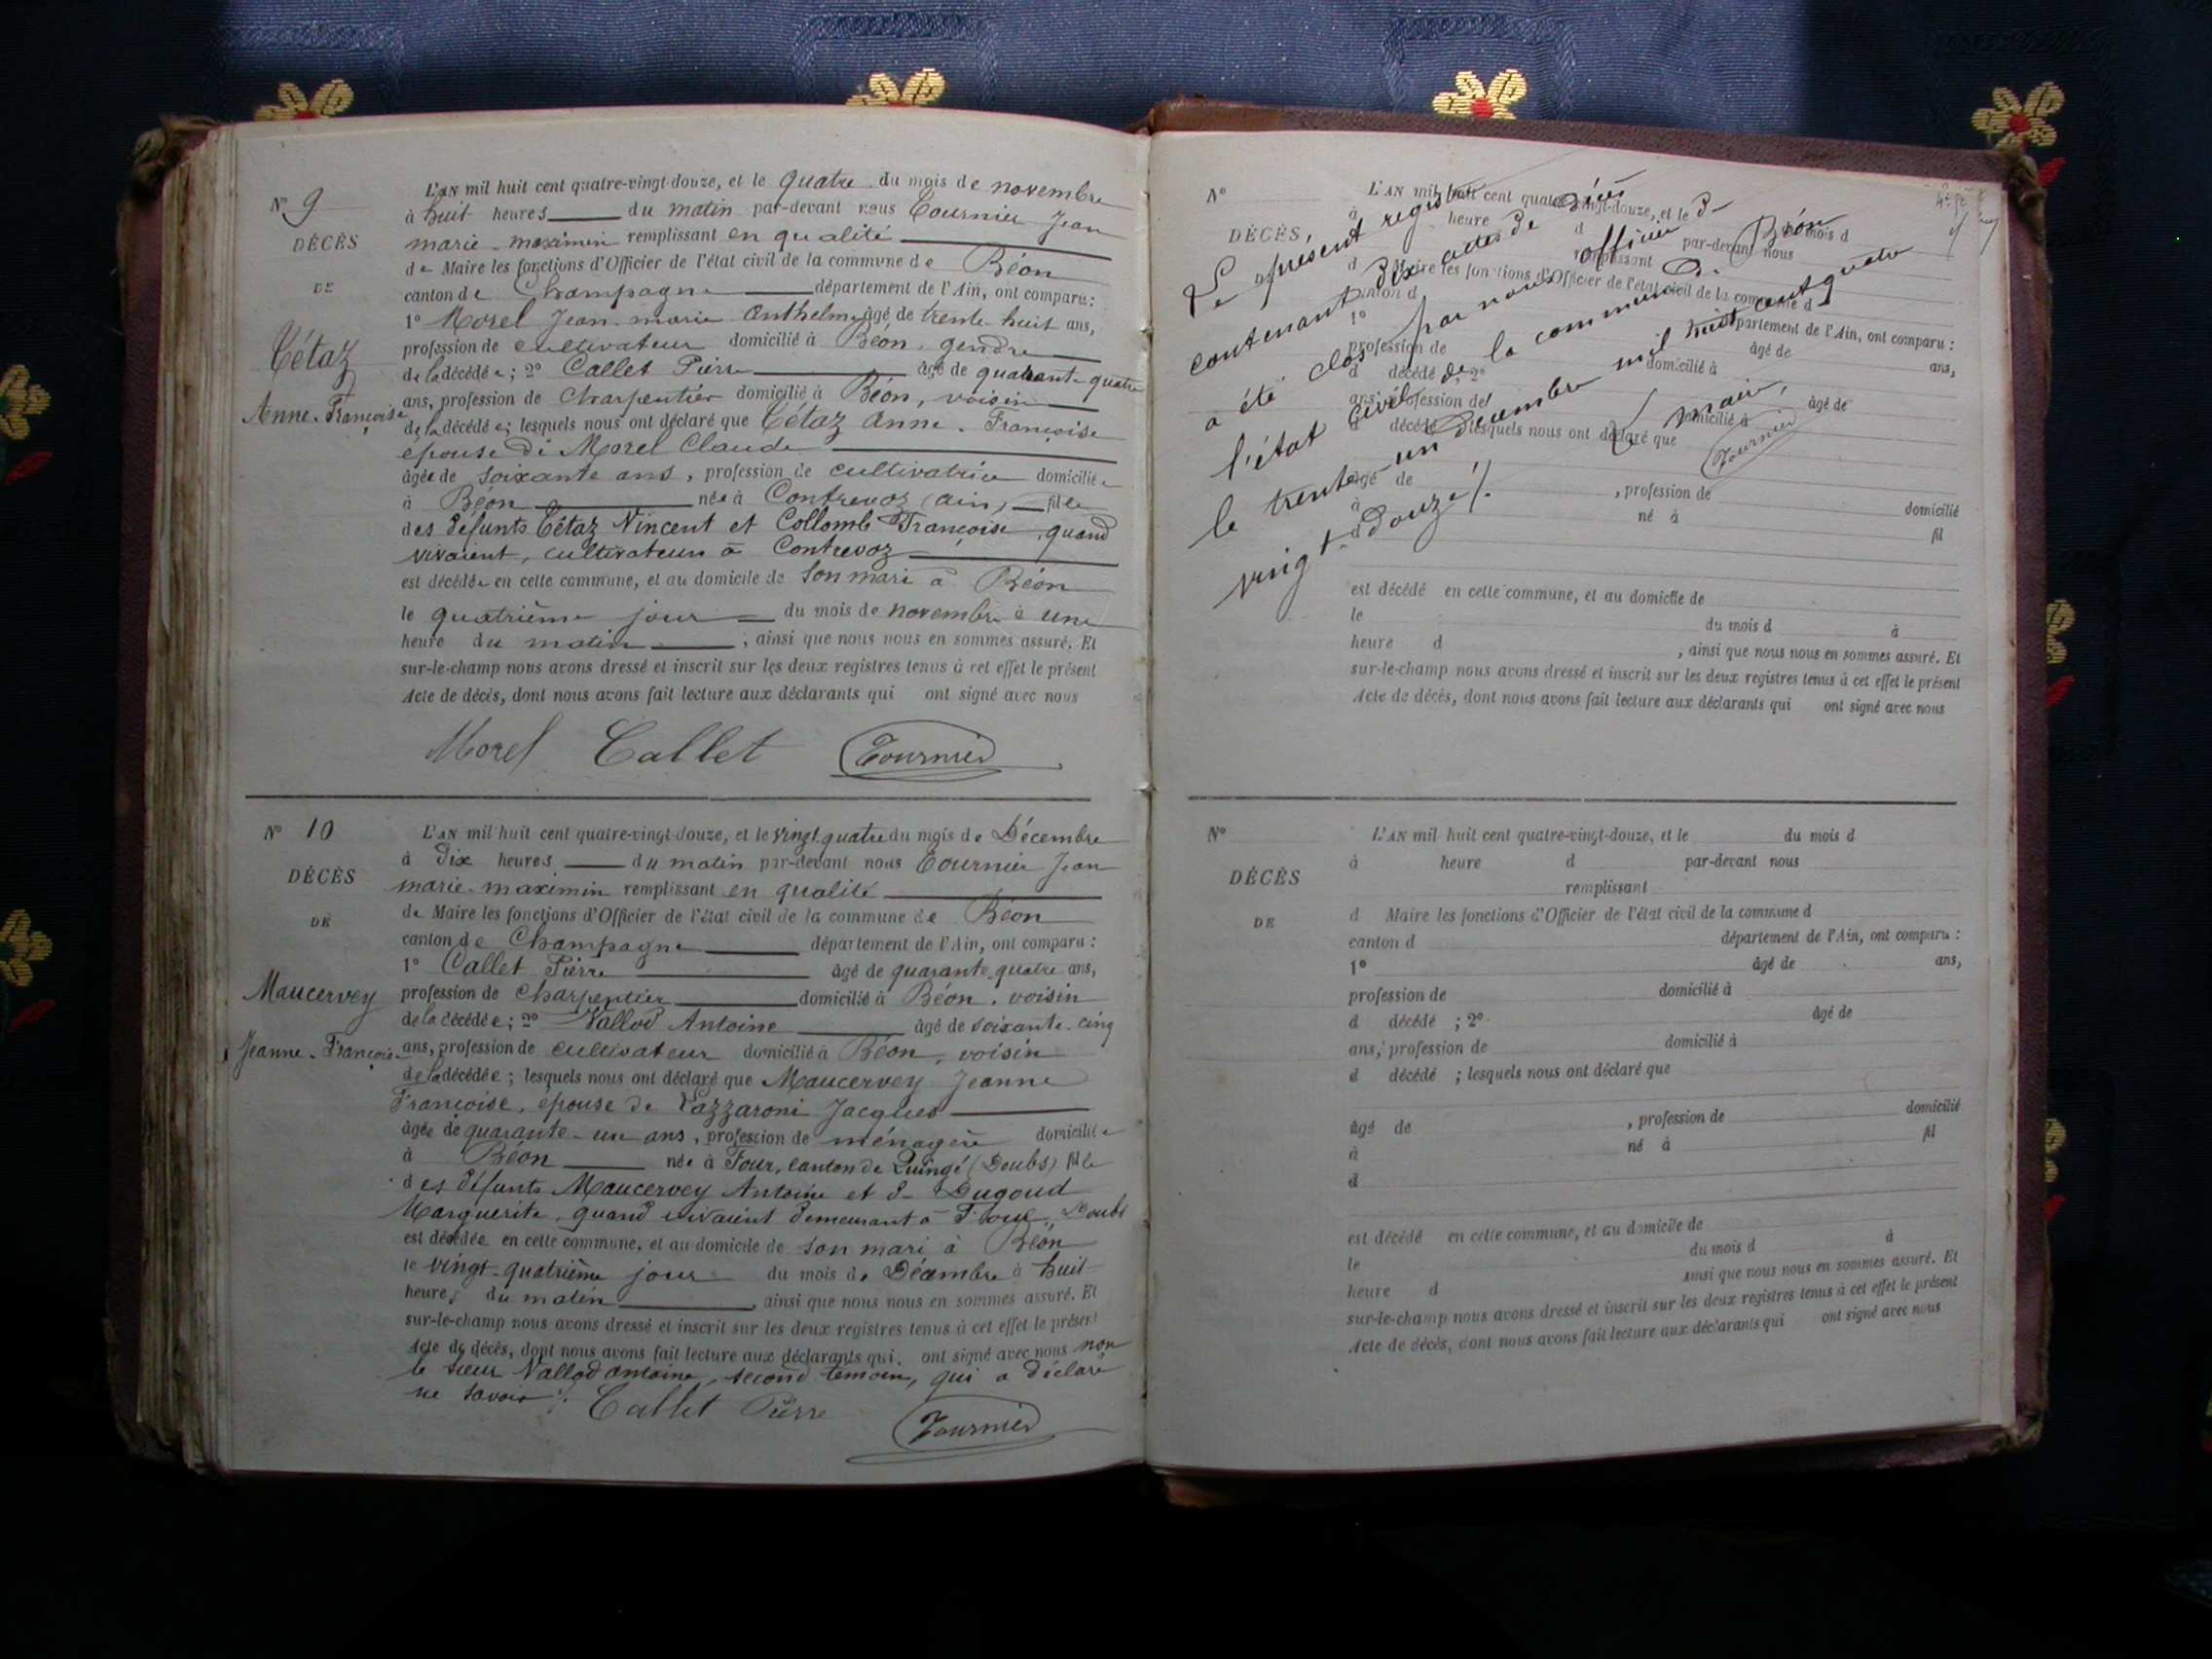 N° 9
DÉCÈS
DE
Tétaz
Anne-Françoise
L'AN mil huit cent quatre-vingt-douze, et le quatre du mois de novembre
à huit heures du matin par-devant nous Tournier Jean
marie-maximin remplissant en qualité
de Maire les fonctions d'Officier de l'état civil de la commune de Béon
canton de Champagne département de l'Ain, ont comparu :
1° Morel Jean-marie Anthelme âgé de trente-huit ans,
profession de cultivateur domicilié à Béon, gendre
de la décédée ; 2° Callet Pierre âgé de quarante-quatre
ans, profession de charpentier domicilié à Béon, voisin
de la décédée ; lesquels nous ont déclaré que Tétaz Anne-Françoise
épouse de Morel Claude
âgée de soixante ans, profession de cultivatrice domiciliée
à Béon née à Contrevoz (Ain), fille
des défunts Tétaz Vincent et Collomb Françoise, quand
vivaient, cultivateurs à Contrevoz
est décédée en cette commune, et au domicile de son mari à Béon
le quatrième jour du mois de novembre à une
heure du matin, ainsi que nous nous en sommes assuré. Et
sur-le-champ nous avons dressé et inscrit sur les deux registres tenus à cet effet le présent
Acte de décès, dont nous avons fait lecture aux déclarants qui ont signé avec nous
Morel Callet Tournier
N° 10
DÉCÈS
DE
Maucervey
Jeanne-Françoise
L'AN mil huit cent quatre-vingt-douze, et le vingt-quatre du mois de Décembre
à dix heures du matin par-devant nous Tournier Jean
marie-maximin remplissant en qualité
de Maire les fonctions d'Officier de l'état civil de la commune de Béon
canton de Champagne département de l'Ain, ont comparu :
1° Callet Pierre âgé de quarante-quatre ans,
profession de charpentier domicilié à Béon, voisin
de la décédée ; 2° Vallod Antoine âgé de soixante-cinq
ans, profession de cultivateur domicilié à Béon, voisin
de la décédée ; lesquels nous ont déclaré que Maucervey Jeanne
Françoise, épouse de Lazzaroni Jacques
âgée de quarante-un ans, profession de ménagère domiciliée
à Béon née à Four, canton de Quingé (Doubs) fille
des défunts Maucervey Antoine et de Dugoud
Marguerite, quand vivaient demeurant à Four, Doubs
est décédée en cette commune, et au domicile de son mari à Béon
le vingt-quatrième jour du mois de Décembre à huit
heures du matin, ainsi que nous nous en sommes assuré. Et
sur-le-champ nous avons dressé et inscrit sur les deux registres tenus à cet effet le présent
Acte de décès, dont nous avons fait lecture aux déclarants qui ont signé avec nous non
le sieur Vallod Antoine, second témoin, qui a déclaré
ne savoir ./.
Callet Pierre
Tournier
N°
DÉCÈS,
L'AN mil huit cent quatre-vingt-douze, et le du mois d
à heure d par-devant nous
remplissant
d Maire les fonctions d'Officier de l'état civil de la commune d
canton d département de l'Ain, ont comparu :
1° âgé de ans,
profession de domicilié à
d décédé ; 2° âgé de
ans, profession de domicilié à
d décédé ; lesquels nous ont déclaré que
âgé de , profession de domicilié
à né à fil
d
est décédé en cette commune, et au domicile de
le du mois d à
heure d , ainsi que nous nous en sommes assuré. Et
sur-le-champ nous avons dressé et inscrit sur les deux registres tenus à cet effet le présent
Acte de décès, dont nous avons fait lecture aux déclarants qui ont signé avec nous
Le présent registre
contenant dix actes de décès
a été clos par nous officier de
l'état civil de la commune de Béon
le trente-un Décembre mil huit cent quatre
vingt-douze ./.
Le maire,
Tournier
N°
DÉCÈS
DE
L'AN mil huit cent quatre-vingt-douze, et le du mois d
à heure d par-devant nous
remplissant
d Maire les fonctions d'Officier de l'état civil de la commune d
canton d département de l'Ain, ont comparu :
1° âgé de ans,
profession de domicilié à
d décédé ; 2° âgé de
ans, profession de domicilié à
d décédé ; lesquels nous ont déclaré que
âgé de , profession de domicilié
à né à fil
d
est décédé en cette commune, et au domicile de
le du mois d à
heure d ainsi que nous nous en sommes assuré. Et
sur-le-champ nous avons dressé et inscrit sur les deux registres tenus à cet effet le présent
Acte de décès, dont nous avons fait lecture aux déclarants qui ont signé avec nous